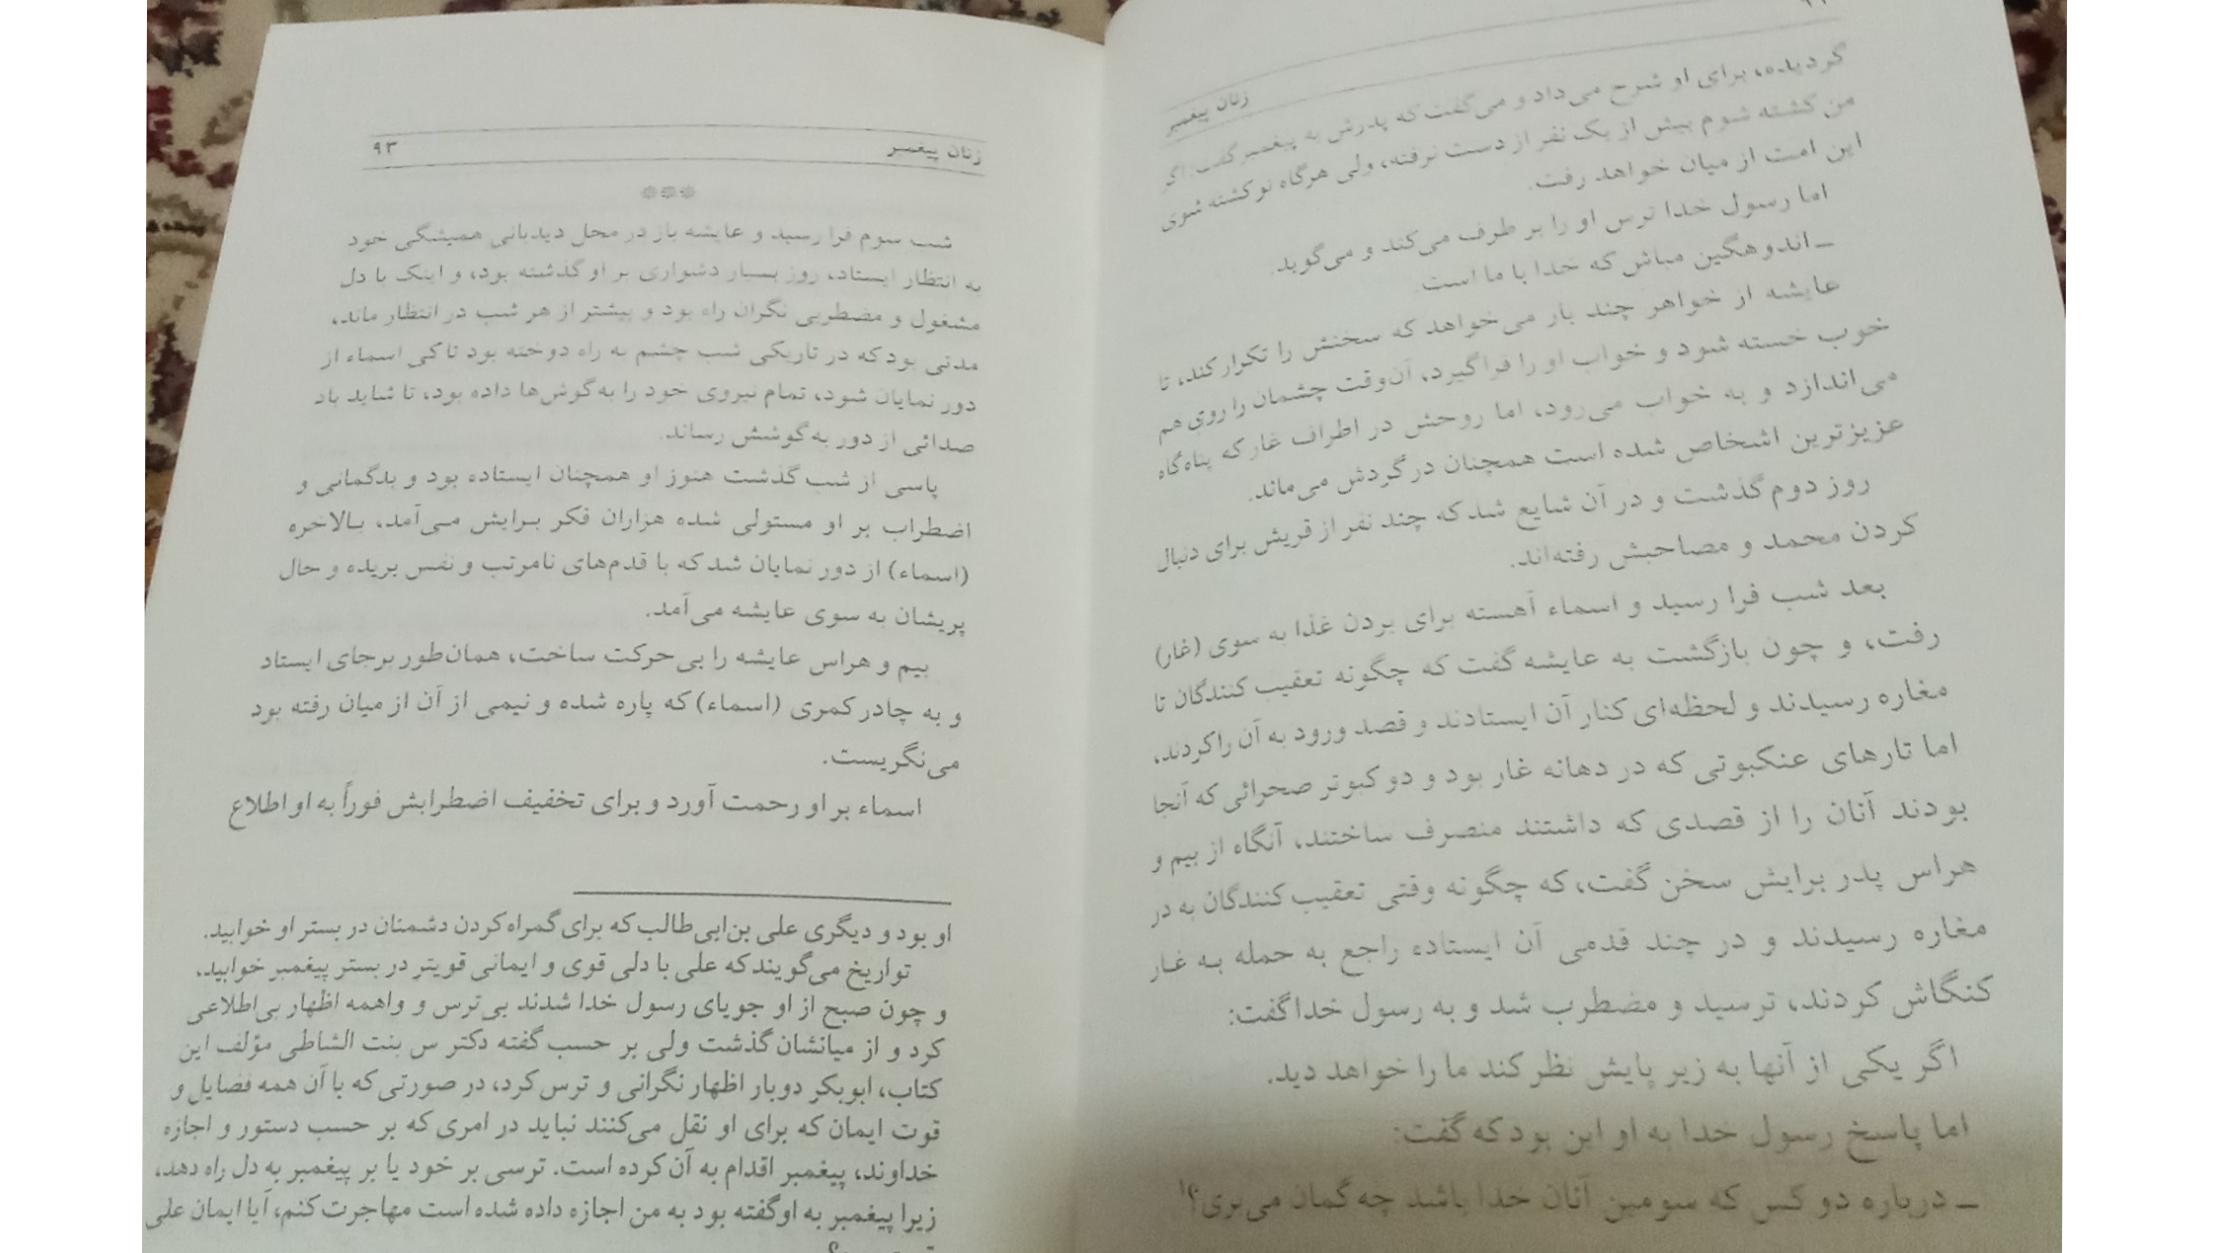 زنان پیغمبر
گردیده، برای او شرح می‌داد و می‌گفت که پدرش به پیغمبر گفت: اگر
من کشته شوم بیش از یک نفر از دست نرفته، ولی هرگاه تو کشته شوی
این امت از میان خواهد رفت.
اما رسول خدا ترس او را بر طرف می‌کند و می‌گوید.
ـ اندوهگین مباش که خدا با ما است.
عایشه از خواهر چند بار می‌خواهد که سخنش را تکرار کند، تا
خوب خسته شود و خواب او را فراگیرد، آن‌وقت چشمان را روی هم
می‌اندازد و به خواب می‌رود، اما روحش در اطراف غار که پناه‌گاه
عزیزترین اشخاص شده است همچنان در گردش می‌ماند.
روز دوم گذشت و در آن شایع شد که چند نفر از قریش برای دنبال
کردن محمد و مصاحبش رفته‌اند.
بعد شب فرا رسید و اسماء آهسته برای بردن غذا به سوی (غار)
رفت، و چون بازگشت به عایشه گفت که چگونه تعقیب کنندگان تا
مغاره رسیدند و لحظه‌ای کنار آن ایستادند و قصد ورود به آن را کردند،
اما تارهای عنکبوتی که در دهانه غار بود و دو کبوتر صحرائی که آنجا
بودند آنان را از قصدی که داشتند منصرف ساختند، آنگاه از بیم و
هراس پدر برایش سخن گفت، که چگونه وقتی تعقیب کنندگان به در
مغاره رسیدند و در چند قدمی آن ایستاده راجع به حمله به غار
کنگاش کردند، ترسید و مضطرب شد و به رسول خدا گفت:
اگر یکی از آنها به زیر پایش نظر کند ما را خواهد دید.
اما پاسخ رسول خدا به او این بود که گفت:
ـ درباره دو کس که سومین آنان خدا باشد چه گمان می‌بری؟¹
زنان پیغمبر ۹۳
***
شب سوم فرا رسید و عایشه باز در محل دیدبانی همیشگی خود
به انتظار ایستاد، روز بسیار دشواری بر او گذشته بود، و اینک با دل
مشغول و مضطربی نگران راه بود و بیشتر از هر شب در انتظار ماند،
مدتی بود که در تاریکی شب چشم به راه دوخته بود تا کی اسماء از
دور نمایان شود، تمام نیروی خود را به گوش‌ها داده بود، تا شاید باد
صدائی از دور به گوشش رساند.
پاسی از شب گذشت هنوز او همچنان ایستاده بود و بدگمانی و
اضطراب بر او مستولی شده هزاران فکر برایش می‌آمد، بالاخره
(اسماء) از دور نمایان شد که با قدم‌های نامرتب و نفس بریده و حال
پریشان به سوی عایشه می‌آمد.
بیم و هراس عایشه را بی‌حرکت ساخت، همان‌طور برجای ایستاد
و به چادر کمری (اسماء) که پاره شده و نیمی از آن از میان رفته بود
می‌نگریست.
اسماء بر او رحمت آورد و برای تخفیف اضطرابش فوراً به او اطلاع
او بود و دیگری علی بن‌ابی‌طالب که برای گمراه کردن دشمنان در بستر او خوابید.
تواریخ می‌گویند که علی با دلی قوی و ایمانی قویتر در بستر پیغمبر خوابید،
و چون صبح از او جویای رسول خدا شدند بی‌ترس و واهمه اظهار بی‌اطلاعی
کرد و از میانشان گذشت ولی بر حسب گفته دکتر س بنت الشاطی مؤلف این
کتاب، ابوبکر دوبار اظهار نگرانی و ترس کرد، در صورتی که با آن همه فضایل و
قوت ایمان که برای او نقل می‌کنند نباید در امری که بر حسب دستور و اجازه
خداوند، پیغمبر اقدام به آن کرده است. ترسی بر خود یا بر پیغمبر به دل راه دهد،
زیرا پیغمبر به او گفته بود به من اجازه داده شده است مهاجرت کنم، آیا ایمان علی